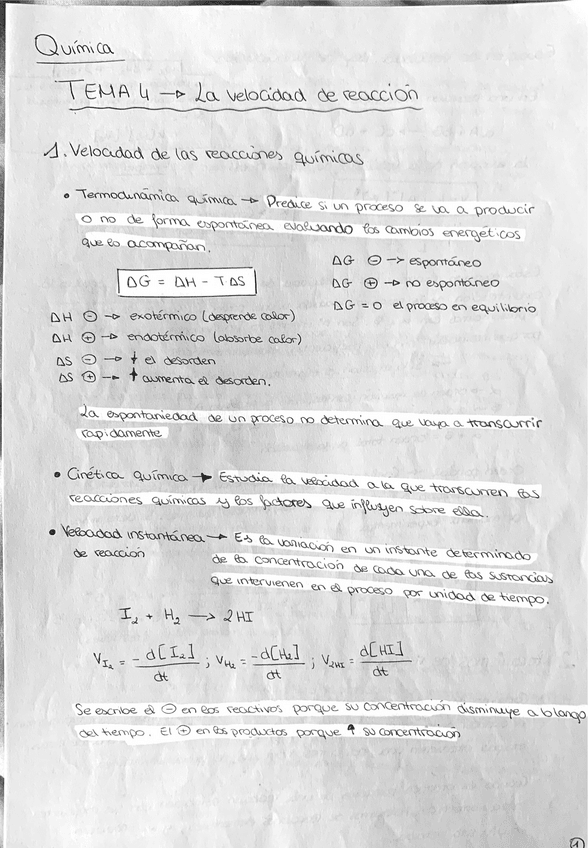 Química
TEMA 4 → La velocidad de reacción
1. Velocidad de las reacciones químicas
• Termodinámica química → Predice si un proceso se va a producir
o no de forma espontánea evaluando los cambios energéticos
que lo acompañan.
ΔG ⊖ → espontáneo
ΔG = ΔH - TΔS
ΔG ⊕ → no espontáneo
ΔG = 0 el proceso en equilibrio
ΔH ⊖ → exotérmico (desprende calor)
ΔH ⊕ → endotérmico (absorbe calor)
ΔS ⊖ → ↓ el desorden
ΔS ⊕ → ↑ aumenta el desorden.
La espontaniedad de un proceso no determina que vaya a transcurrir
rapidamente
• Cinética química → Estudia la velocidad a la que transcurren las
reacciones químicas y los factores que influyen sobre ella.
• Velocidad instantánea → Es la variación en un instante determinado
de reacción de la concentración de cada una de las sustancias
que intervienen en el proceso por unidad de tiempo.
I₂ + H₂ → 2HI
V_I₂ = -d[I₂]/dt ; V_H₂ = -d[H₂]/dt ; V_2HI = d[HI]/dt
Se escribe el ⊖ en los reactivos porque su concentración disminuye a lo largo
del tiempo. El ⊕ en los productos porque ↑ su concentración
1